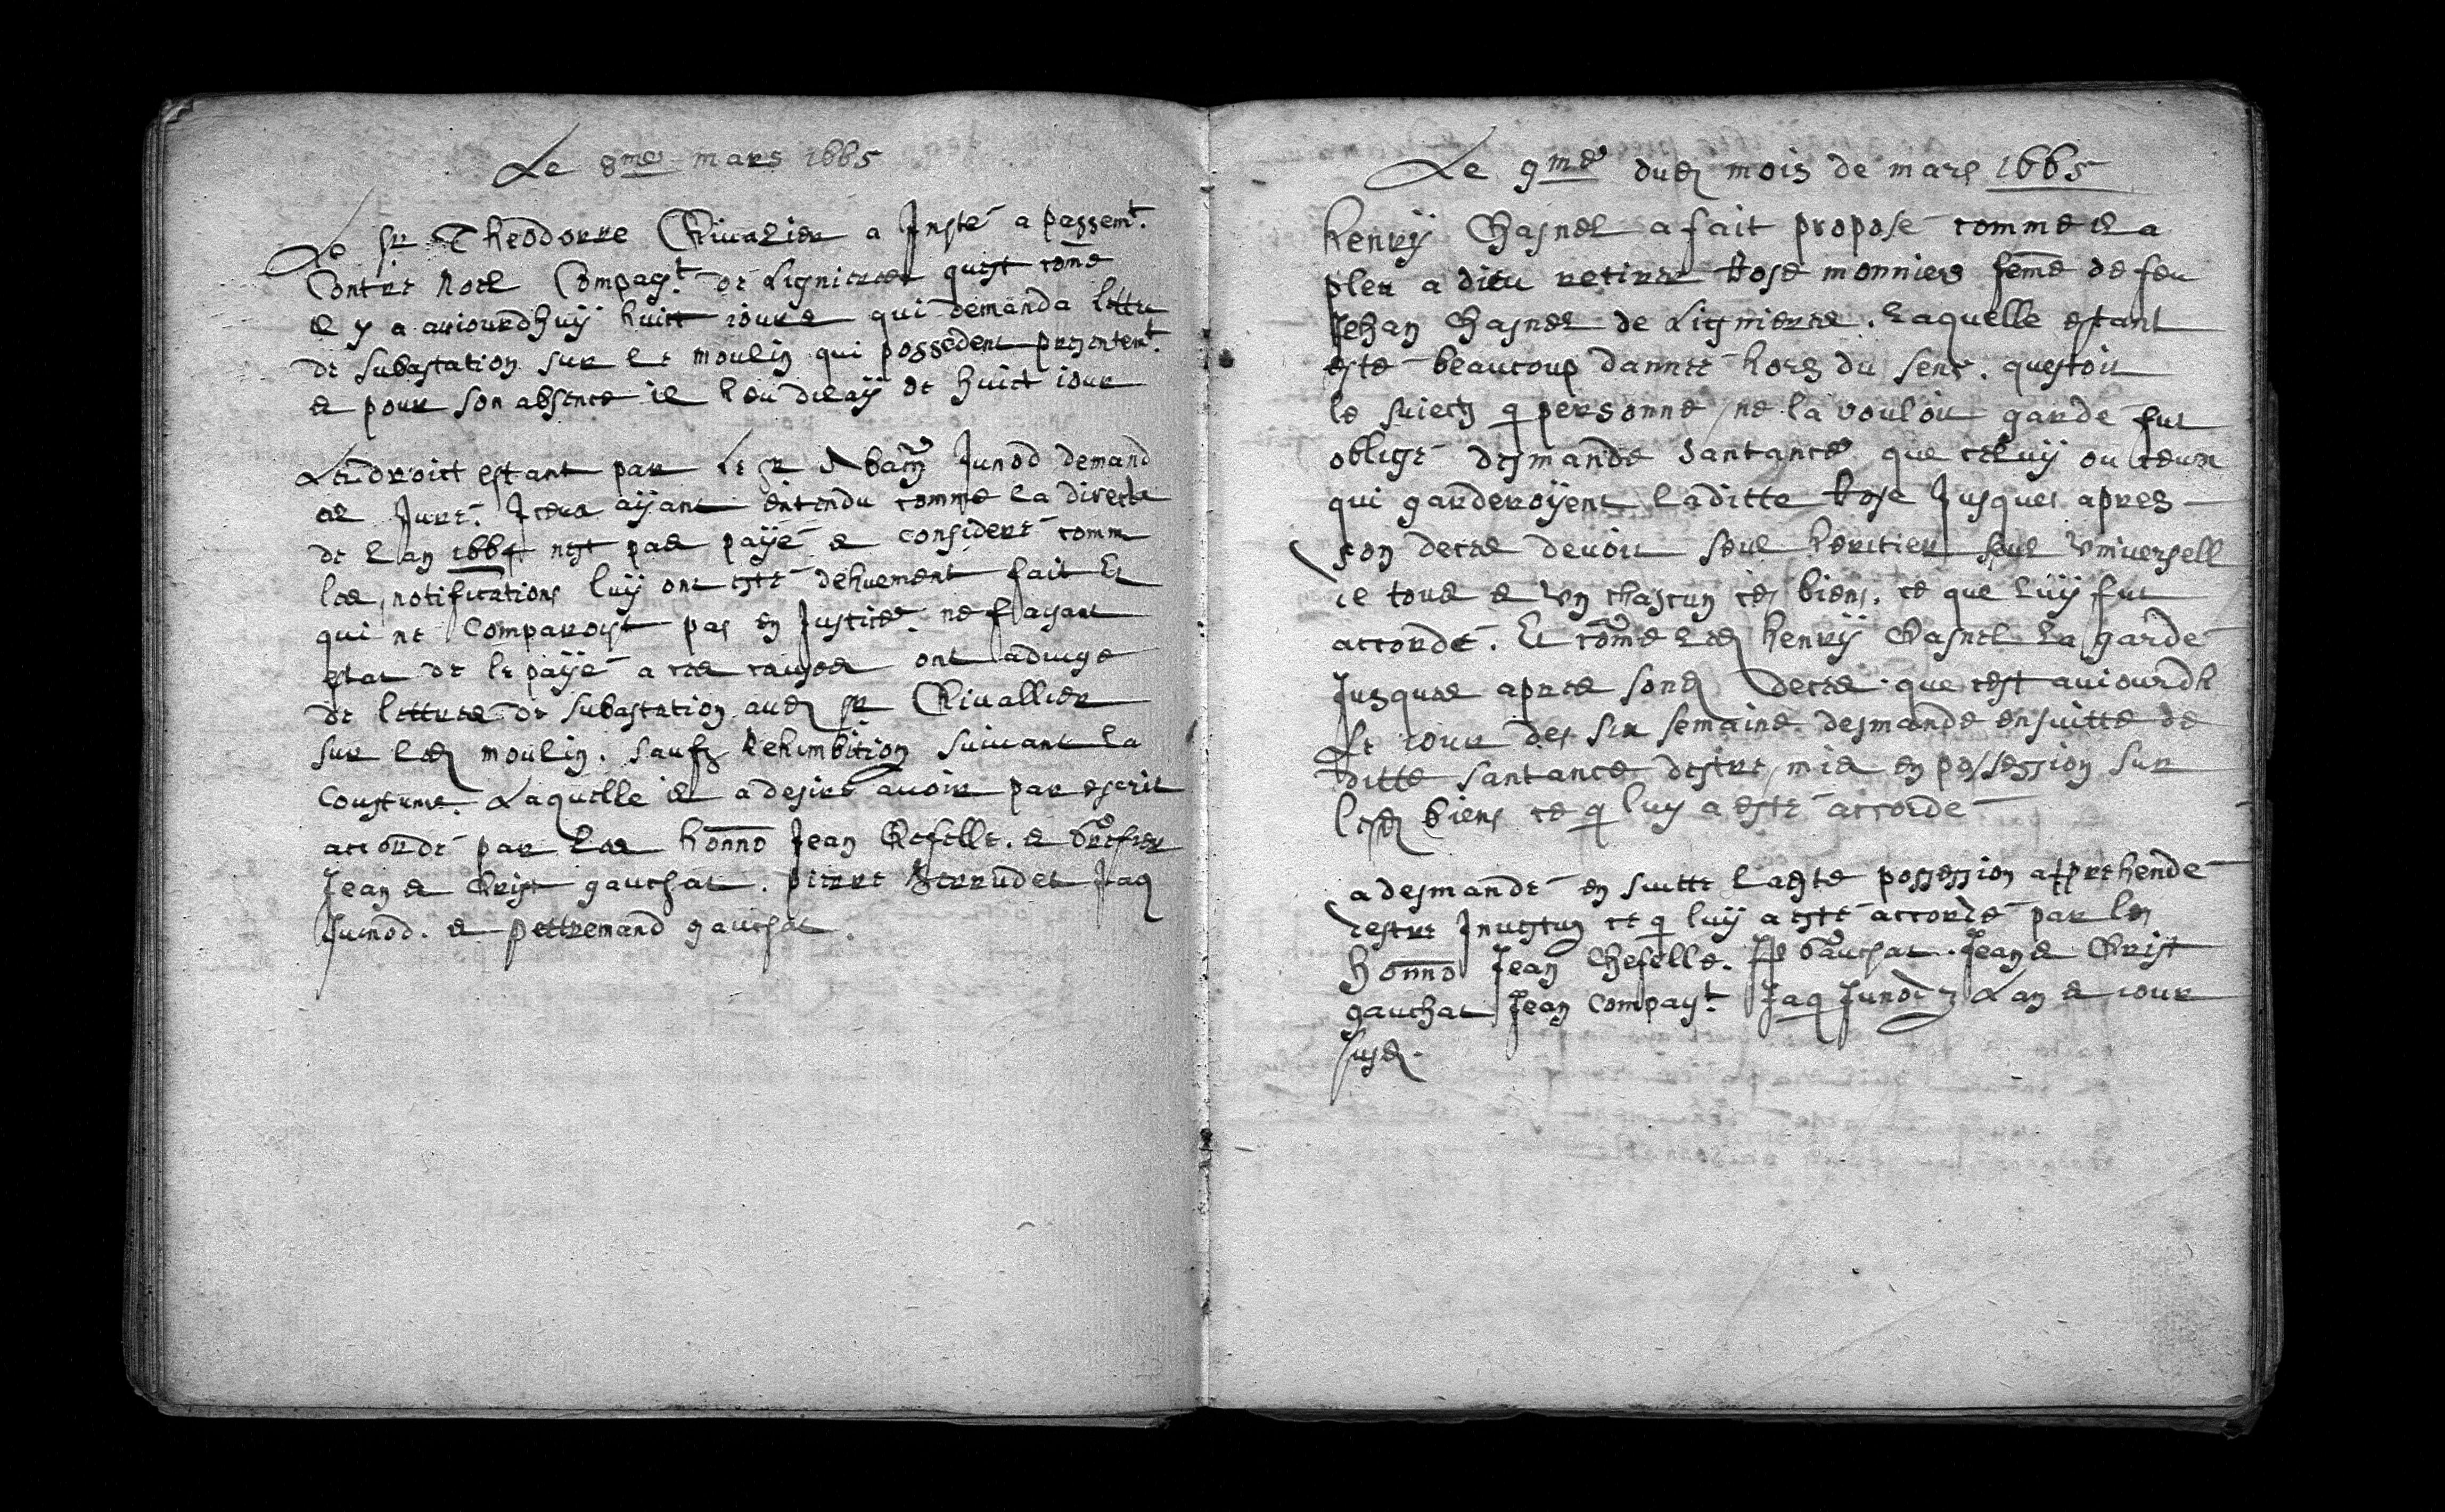 Le 8me mars 1665
Le Sr Theodorre Chivalier a Insté a passemt.
Contre Noel Compagt. de Lignieres quest come
il y a auiourdhuÿ huict iours qui demanda lettre
de subastation sur le moulin qui possedent presentemt.
et pour son absence il heu delaÿ de huict iour
Le droict estant par le Sr Junod demand
al Juré. Iceux aÿant entendu comme la directe
de lan 1664 nest pas paÿé et consideré comm
les notifications luÿ ont esté dehuement fait Et
qui ne comparoist pas en Justice. ne faisant
estat de le paÿé a ces causes ont adiugé
de lettres de subastation aud Sr Chivallier
sur led moulin. saufz Rehimbition suivant la
coustume. Laquelle il a desiré avoir par escrit
accordé par les honno Jean Chefelle. et
Jean et Crist gauchat. pierre Jaq
Junod. et pettremand gauchat.
Le 9me dud mois de mars 1665
henrÿ Chasnel a fait proposé comme il a
pleu a dieu retirer Rose monniers feme de feu
Jehan Chasnel de Lignieres. Laquelle estant
esté beaucoup dannee hors du sens. questoit
le suiect q personne ne la vouloit garde fut
obligé desmande santance que celuÿ ou ceux
qui garderoÿent laditte Rose Jusques apres
son deces devoit seul heritier seul vniversell
ce tous et vn chascun ces biens. ce que luÿ fut
accordé. Et come led henrÿ Chasnel la garde
Jusques apres sond deces que cest auiourdh
Le iour des six semaine desmande ensuitte de
ditte santance destre mis en possession sur
lesd biens ce q luy a esté accordé
a desmandé en suitte lad possession apprehende
destre Jnvestuz ce q luÿ a esté accordé par les
honno Jean Chefelle. gauchat. Jean et Crist
gauchat Jean compagt. Jaq Junod Lan et iour
susd.